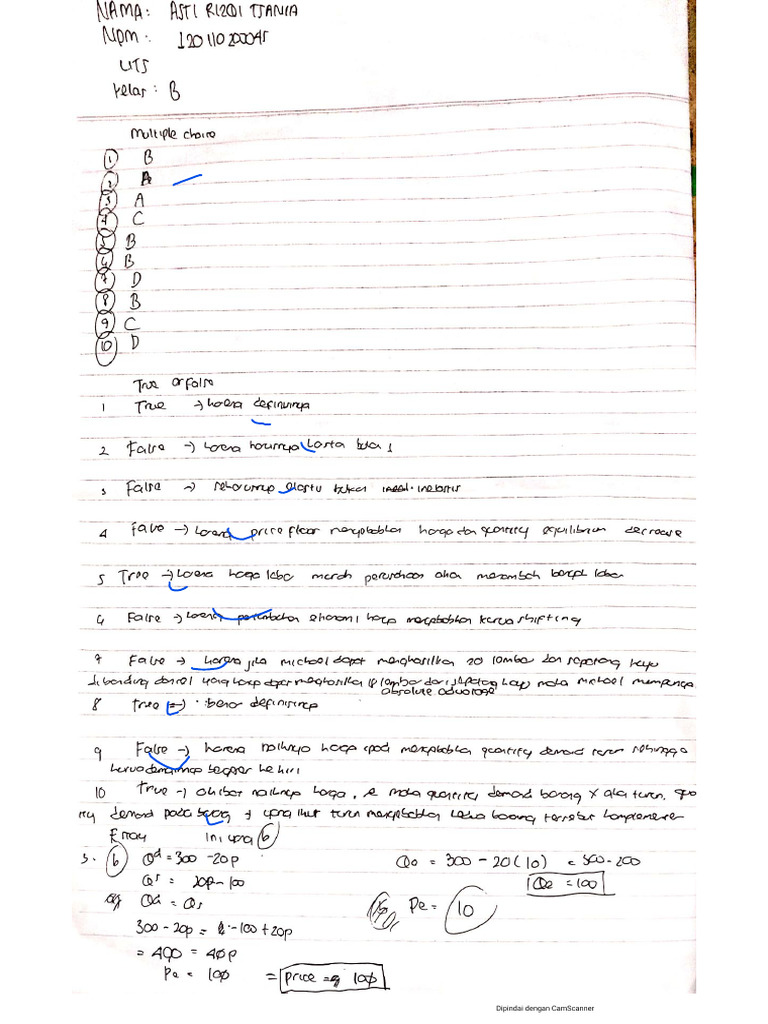 NAMA: ASTI RIZQI TSANIA
NPM: 120110200045
UTS
Kelas: B
Multiple choice
1 B
2 A
3 A
4 C
5 B
6 B
7 D
8 B
9 C
10 D
True or False
1 True → karena definisinya
2 False → karena
3 False → elastis bukan inelastis
4 False → karena price floor menyebabkan harga dan quantity equilibrium decrease
5 True → karena harga labor murah perusahaan akan menambah labor
6 False → karena pertumbuhan ekonomi menyebabkan kurva shifting
7 False → karena jika michael dapat menghasilkan 20 lembar dari sepotong kayu
dibanding daniel yang hanya dapat menghasilkan lembar dari sepotong kayu maka michael mempunyai
absolute advantage
8 True → benar definisinya
9 False → karena naiknya harga ipod menyebabkan quantity demand turun sehingga
kurva demandnya bergeser ke kiri
10 True → akibat naiknya harga, maka quantity demand barang X akan turun.
demand pada barang y yang ikut turun menyebabkan kedua barang tersebut komplementer
Essay ini yang b
3. b Qd = 300 - 20p Qe = 300 - 20(10) = 300-200
Qs = 20p - 100 Qe = 100
Qd = Qs Pe = 10
300 - 20p = -100 + 20p
= 400 = 40p
Pe = 10 = price = 10
Dipindai dengan CamScanner